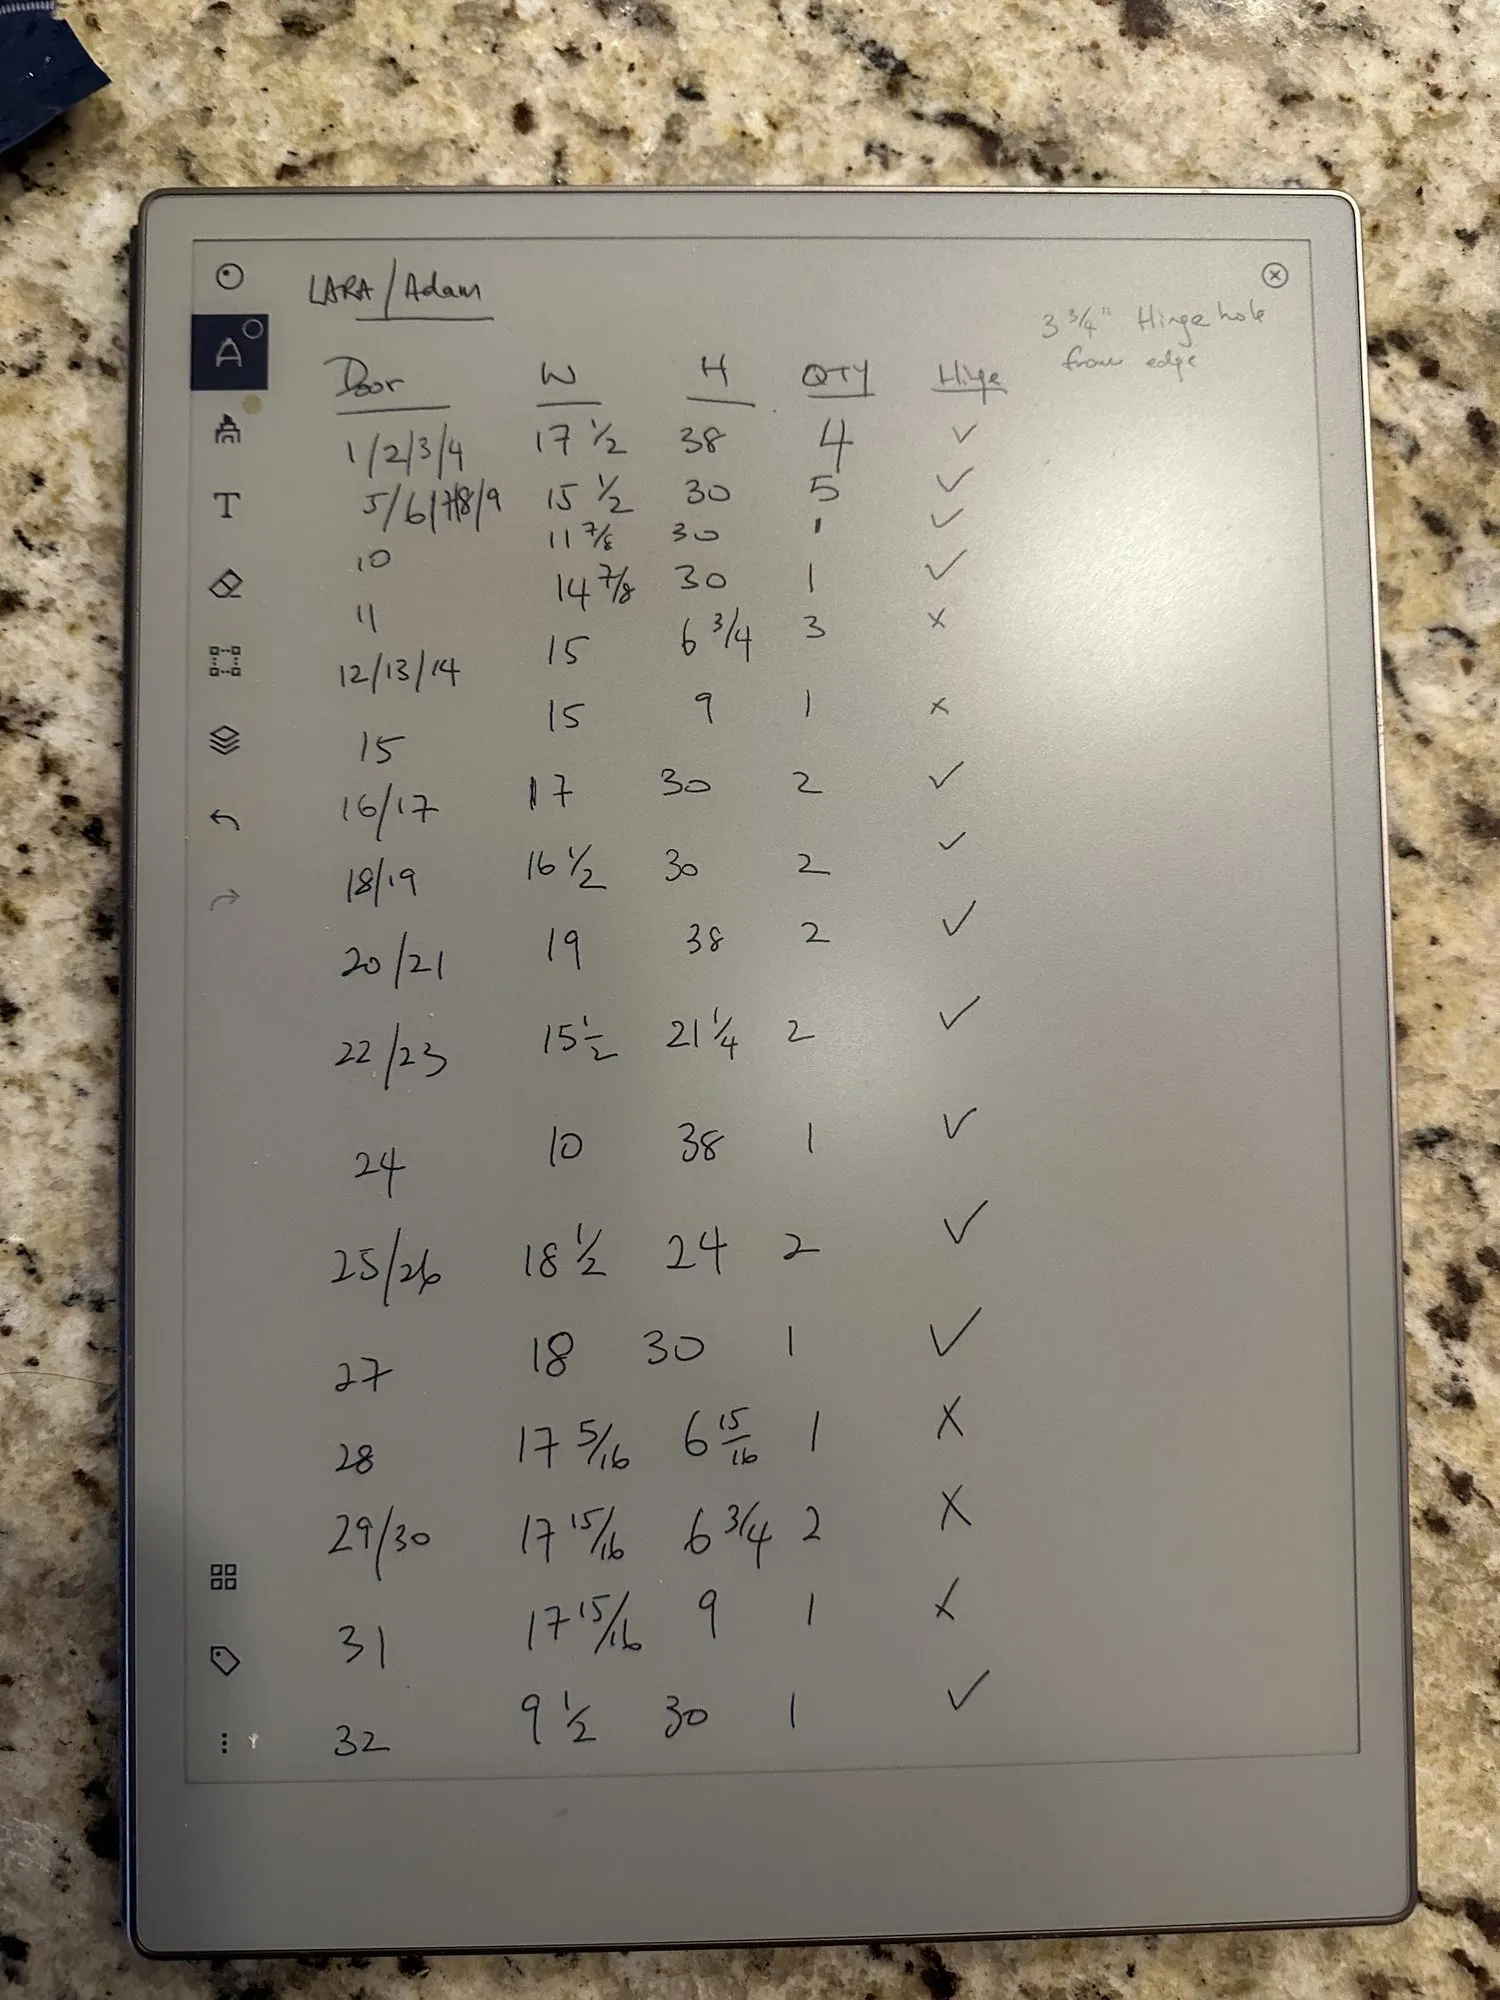 LARA/Adam
3 3/4" Hinge hole
from edge
Door W H QTY Hinge
1/2/3/4 17 1/2 38 4 ✓
5/6/7/8/9 15 1/2 30 5 ✓
10 11 7/8 30 1 ✓
11 14 7/8 30 1 ✓
12/13/14 15 6 3/4 3 x
15 15 9 1 x
16/17 17 30 2 ✓
18/19 16 1/2 30 2 ✓
20/21 19 38 2 ✓
22/23 15 1/2 21 1/4 2 ✓
24 10 38 1 ✓
25/26 18 1/2 24 2 ✓
27 18 30 1 ✓
28 17 5/16 6 15/16 1 X
29/30 17 15/16 6 3/4 2 X
31 17 15/16 9 1 X
32 9 1/2 30 1 ✓
T